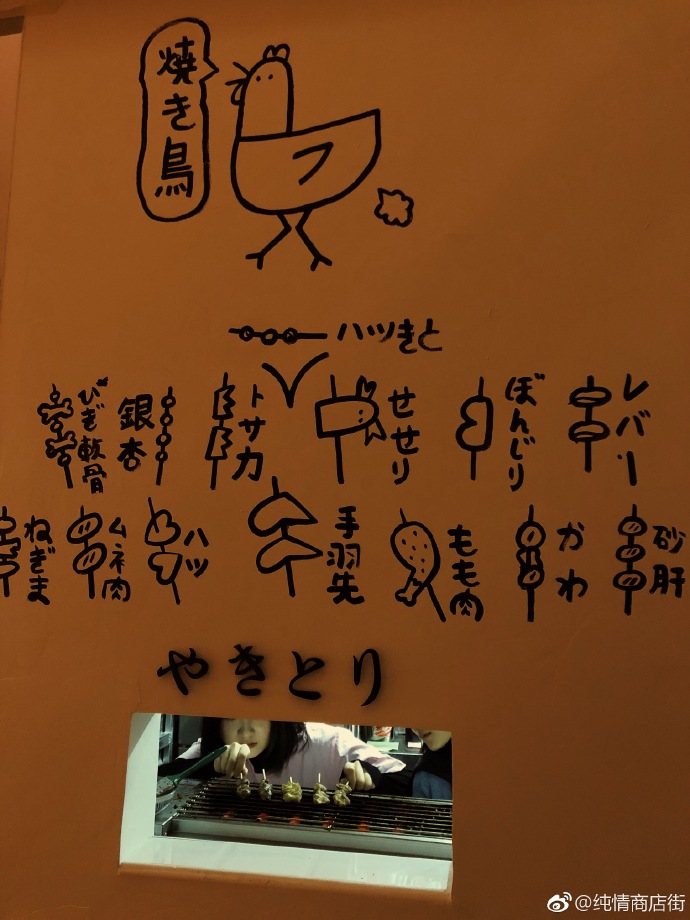 焼き鳥
ハツきと
レバー
ぼんじり
せせり
トサカ
銀杏
ひざ軟骨
砂肝
かわ
もも肉
手羽先
ハツ
ムネ肉
ねぎま
やきとり
@纯情商店街